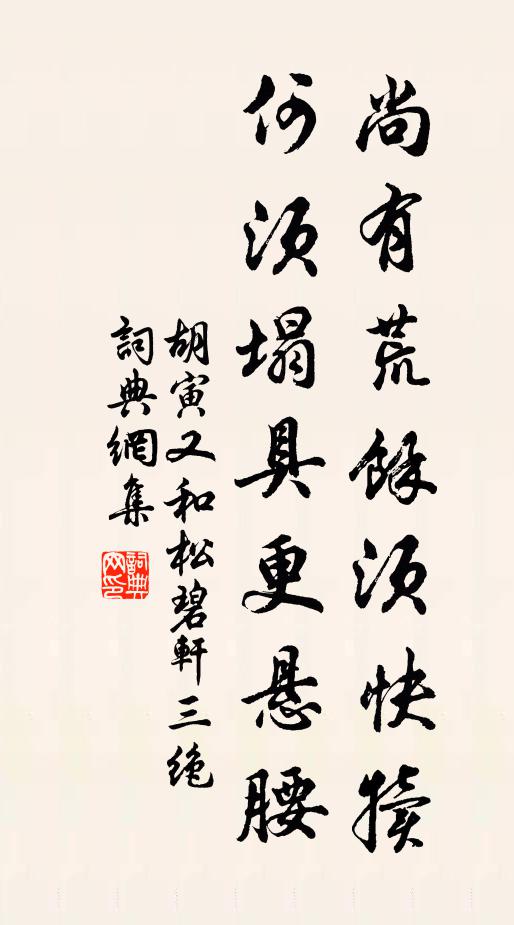 尚有荒餘須快犢
何須塌具更懸腰
胡寅又和松碧軒三絶
詞典網集
詞典网印